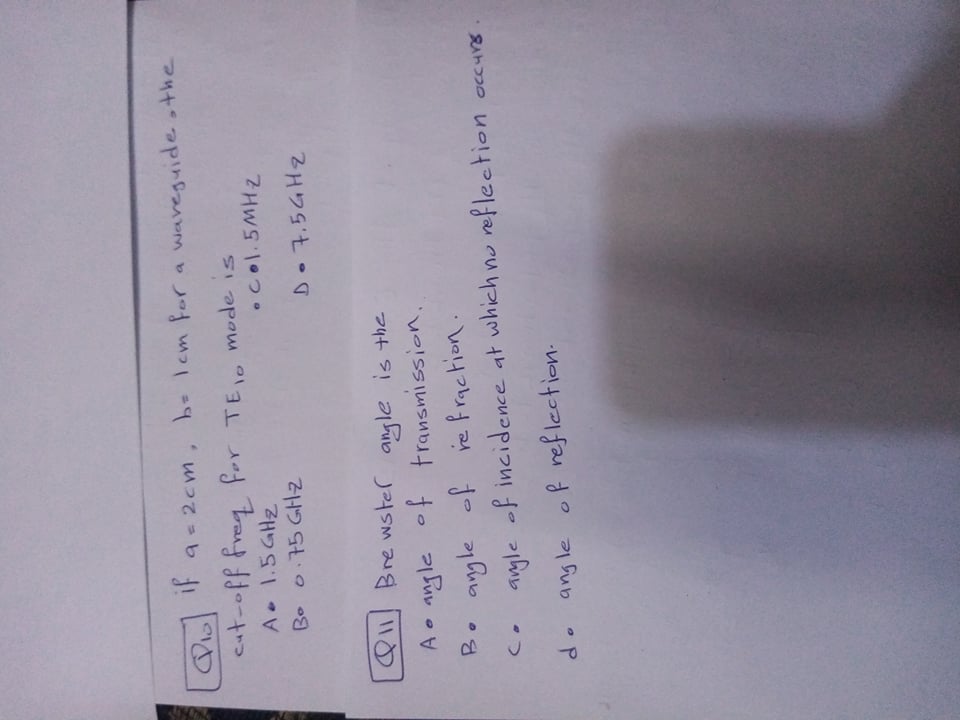 Q10 if a = 2cm, b= 1cm for a waveguide, the
cut-off freq for TE10 mode is
A. 1.5 GHz .C. 1.5 MHz
B. 0.75 GHz D. 7.5 GHz
Q11 Brewster angle is the
A. angle of transmission.
B. angle of refraction.
C. angle of incidence at which no reflection occurs.
d. angle of reflection.